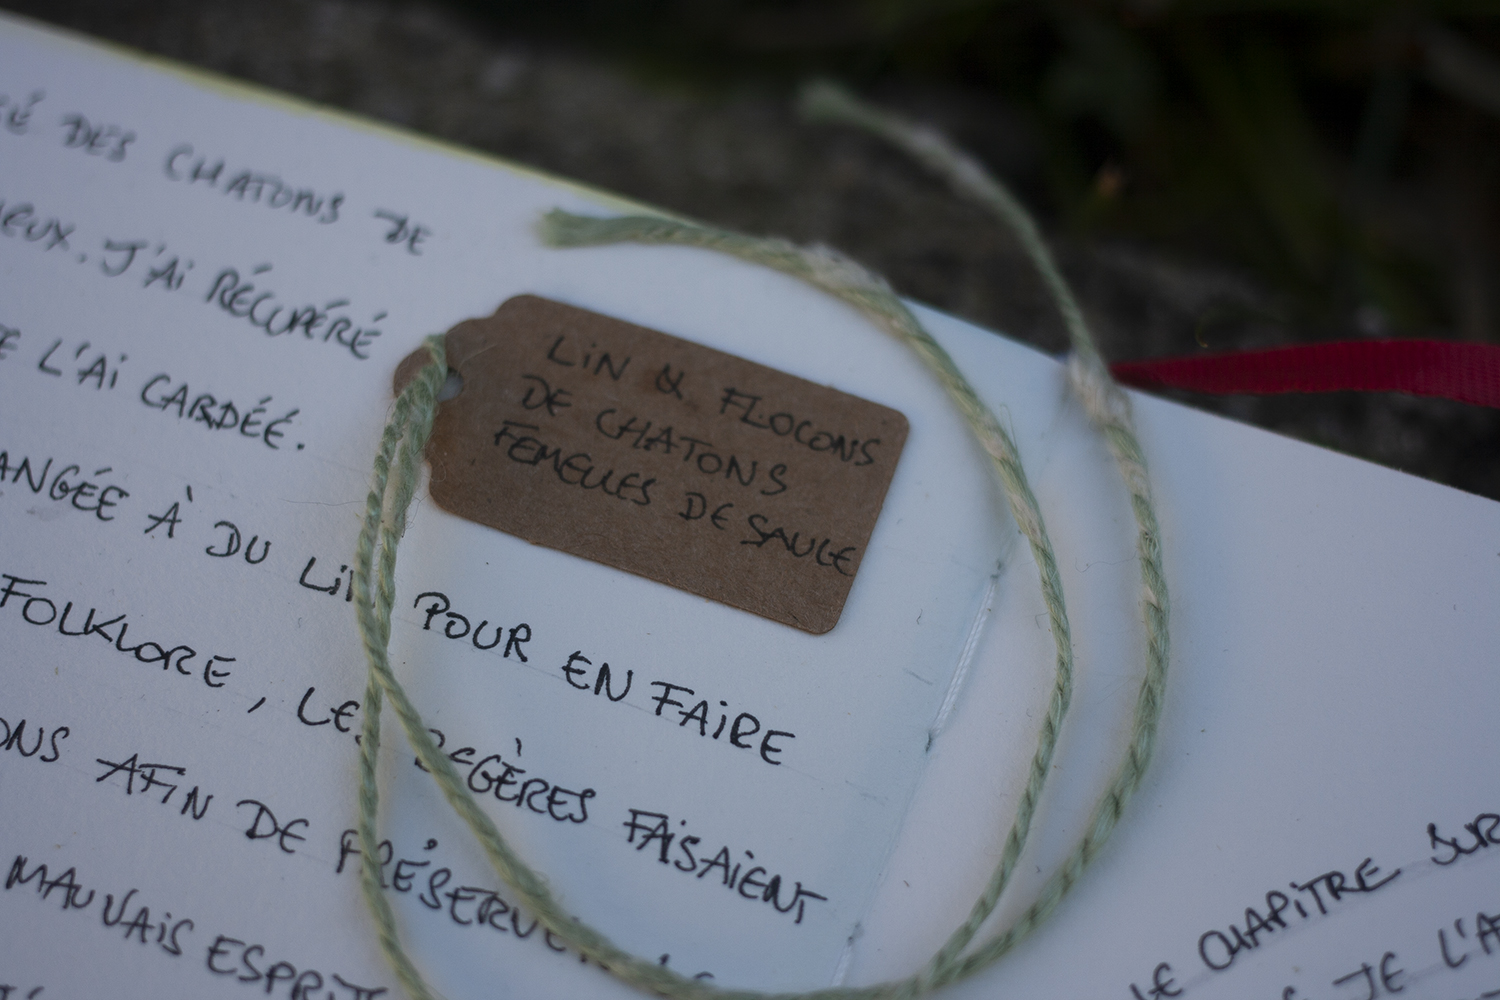 DES CHATONS DE
J'AI RÉCUPÉRÉ
L'AI CARDÉÉ.
À DU LIN POUR EN FAIRE
FOLKLORE, LES FAISAIENT
AFIN DE PRÉSERVER
MAUVAIS
LIN & FLOCONS
DE CHATONS
FEMELLES DE SAULE
CHAPITRE SUR
JE